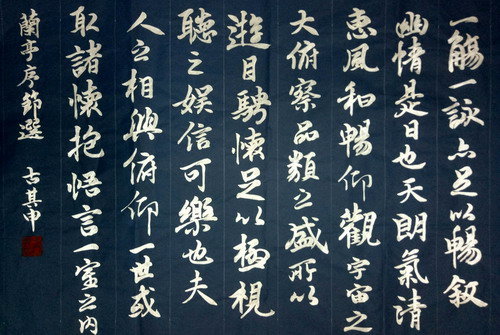 一觴一詠亦足以暢叙
幽情是日也天朗氣清
惠風和暢仰觀宇宙之
大俯察品類之盛所以
遊目騁懷足以極視
聽之娛信可樂也夫
人之相與俯仰一世或
取諸懷抱悟言一室之内
蘭亭序節選 古其申